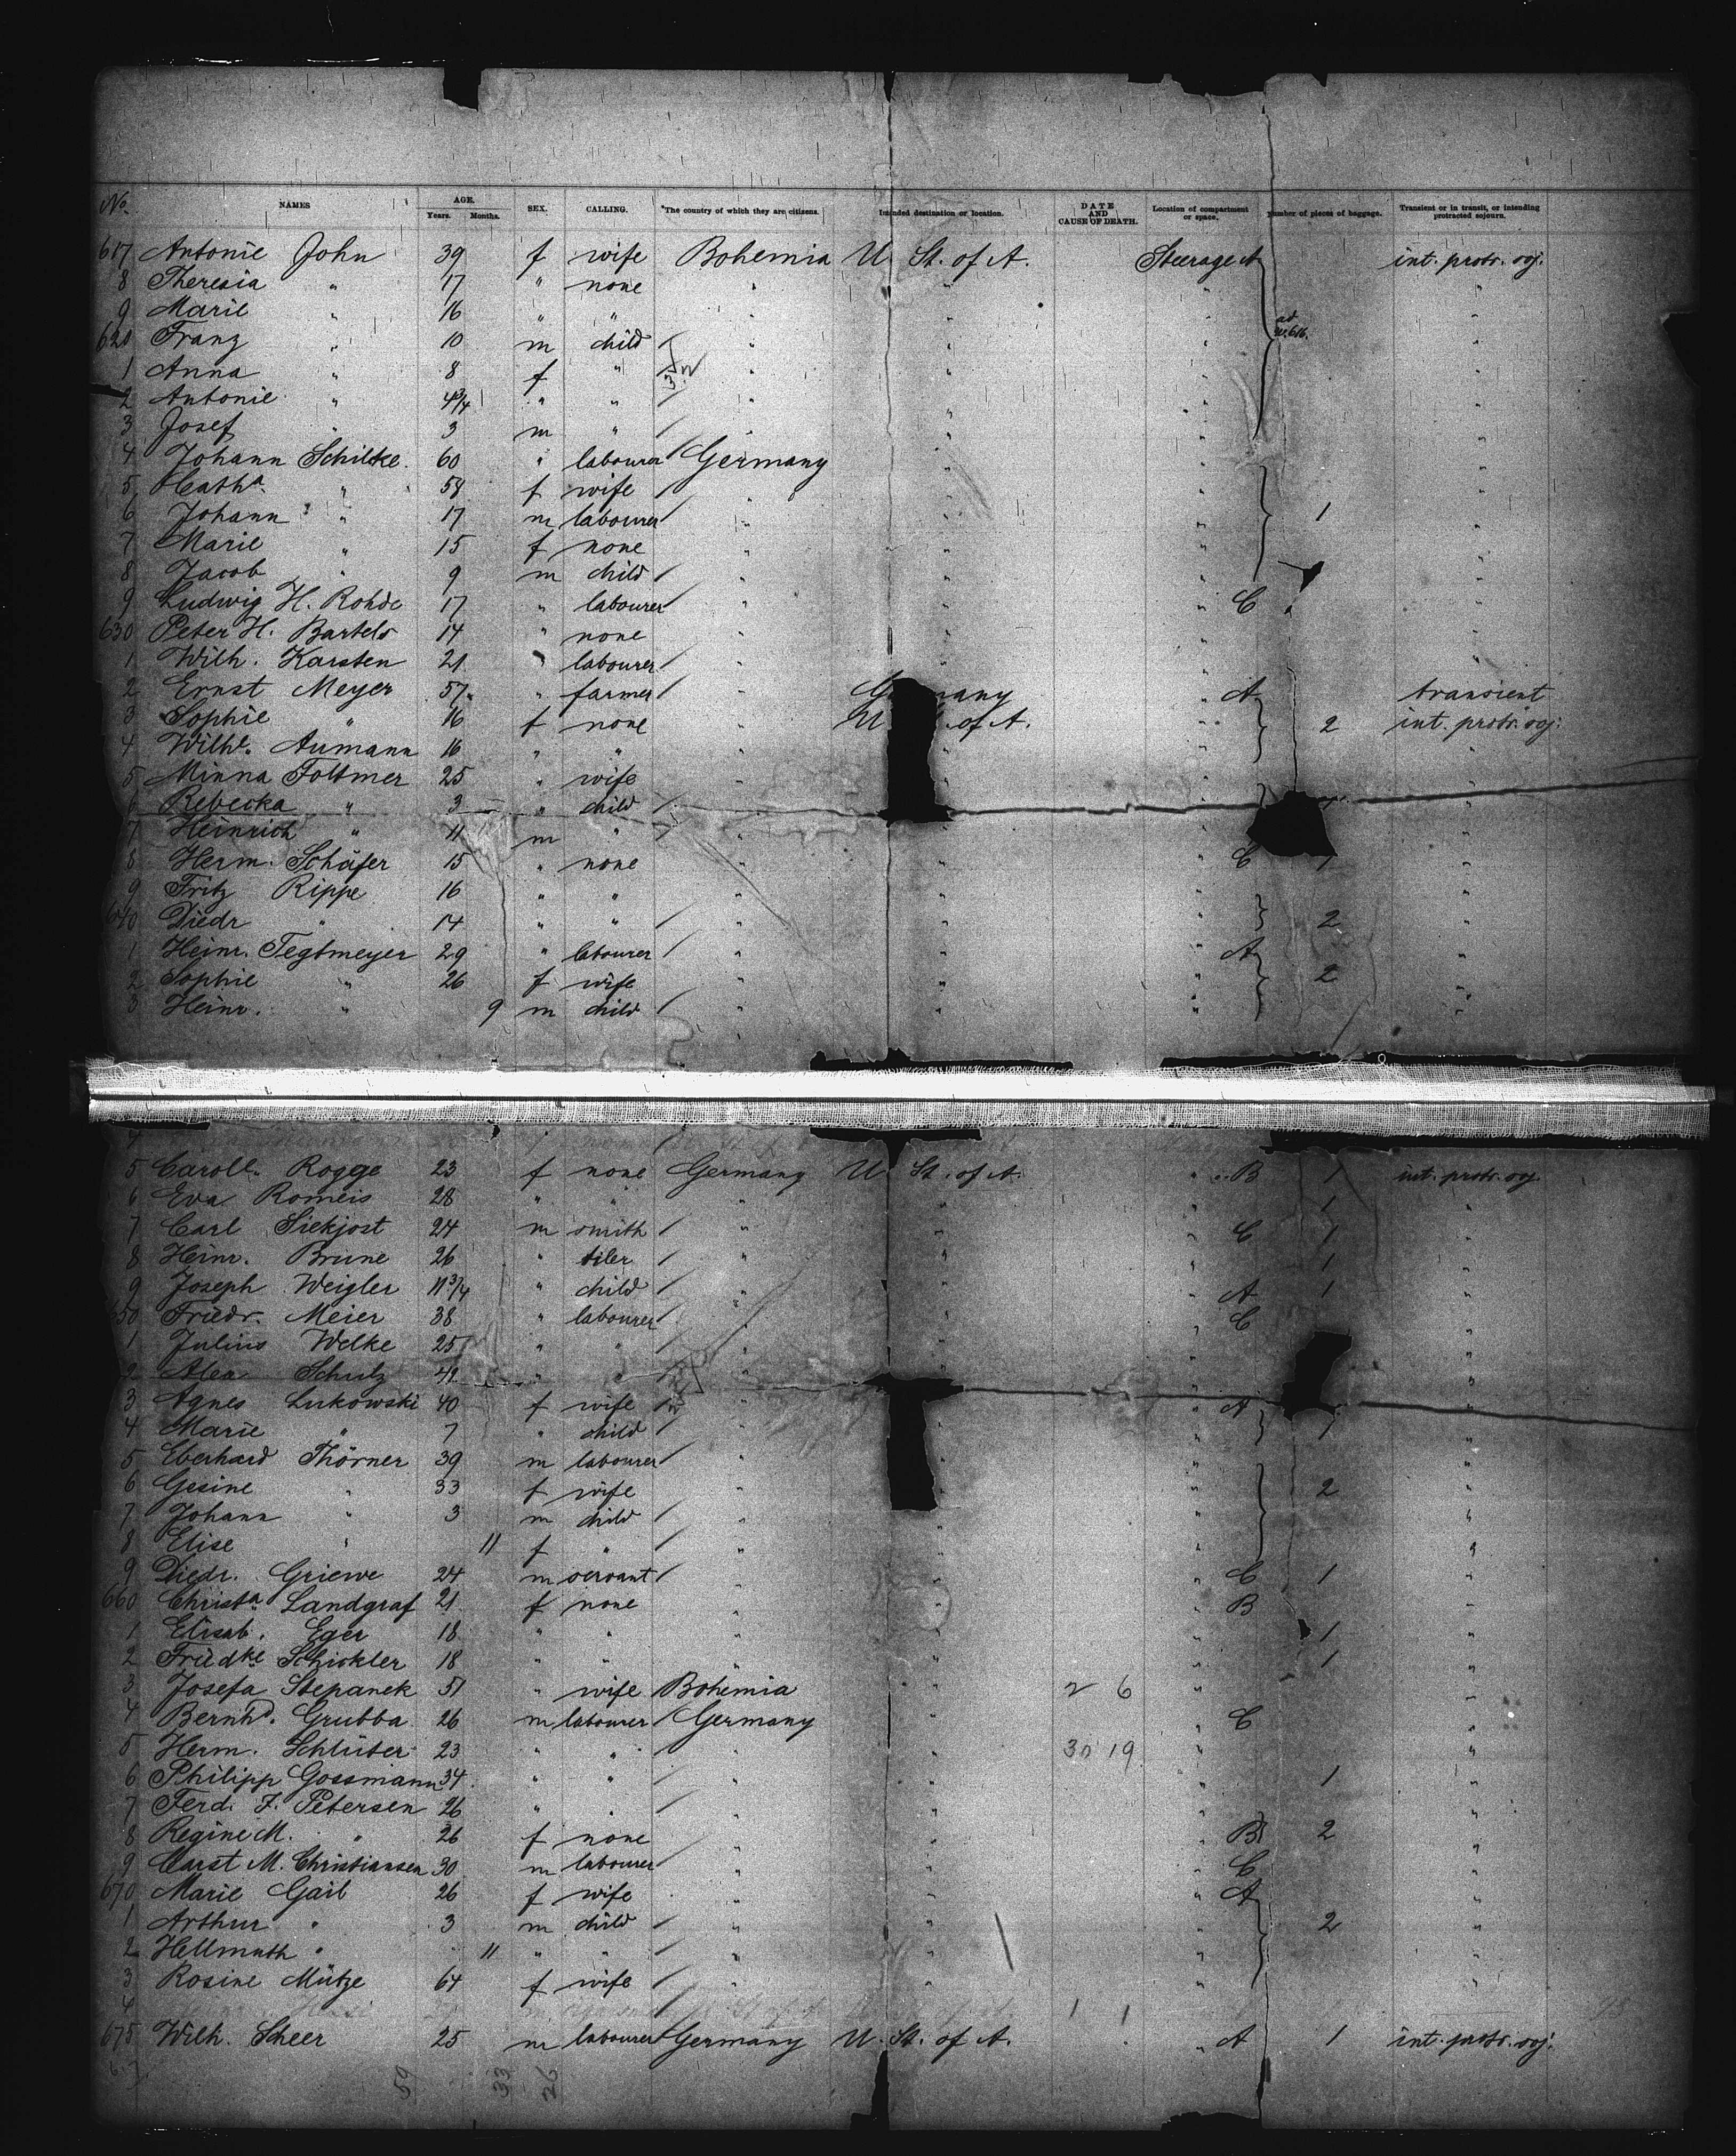 No. NAMES AGE. Years. Months. SEX. CALLING. *The country of which they are citizens. Intended destination or location. DATE AND CAUSE OF DEATH. Location of compartment or space. Number of pieces of baggage. Transient or in transit, or intending protracted sojourn.
617 Antonie John 39 f wife Bohemia U. St. of A. Steerage A int. protr. soj.
8 Theresia " 17 " none " " " "
9 Marie " 16 " " " " " "
620 Franz " 10 m child " " " ad No. 616. "
1 Anna " 8 f " " " " "
2 Antonie " 4 3/4 " " " " " "
3 Josef " 3 m " " " " "
4 Johann Schilke 60 " labourer Germany " " "
5 Cath.a " 58 f wife " " " "
6 Johann " 17 m labourer " " " 1 "
7 Marie " 15 f none " " " "
8 Jacob " 9 m child " " " "
9 Ludwig H. Rohde 17 " labourer " " " C "
630 Peter H. Bartels 14 " none " " " "
1 Wilh. Karsten 21 " labourer " " " "
2 Ernst Meyer 57 " farmer " Germany " A transient
3 Sophie " 16 f none " U of A. " 2 int. protr. soj.
4 Wilh.e Aumann 16 " " " " " "
5 Minna Foltmer 25 " wife " " " "
6 Rebecka " 3 " child " " " "
7 Heinrich " 11 m " " " " "
8 Herm. Schäfer 15 " none " " " C 1 "
9 Fritz Rippe 16 " " " " " "
640 Diedr " 14 " " " " " 2 "
1 Heinr. Tegtmeyer 29 " labourer " " " A "
2 Sophie " 26 f wife " " " 2 "
3 Heinr. " 9 m child " " " "
4
5 Caroll. Rogge 23 f none Germany U. St. of A. " B 1 int. protr. soj.
6 Eva Romeis 28 " " " " " 1 "
7 Carl Siekjost 24 m smith " " " C 1 "
8 Heinr. Brune 26 " tiler " " " 1 "
9 Joseph Weigler 11 3/4 " child " " " A 1 "
650 Friedr. Meier 38 " labourer " " " C "
1 Julius Welke 25 " " " " " "
2 Alex Schulz 42 " " " " " "
3 Agnes Lukowski 40 f wife " " " A "
4 Marie " 7 " child " " " 1 "
5 Eberhard Thörner 39 m labourer " " "
6 Gesine " 33 f wife " " 2 "
7 Johann " 3 m child " " " "
8 Elise " 11 f " " " " "
9 Diedr. Griewe 24 m servant " " " C 1 "
660 Christ.a Landgraf 21 f none " " " B "
1 Elisab. Eger 18 " " " " " 1 "
2 Fried.ke Schickler 18 " " " " " 1 "
3 Josefa Stepanek 51 " wife Bohemia " 2 6 " "
4 Bernh.d Grubba 26 m labourer Germany " " C "
5 Herm. Schlüter 23 " " " " 30 19 " "
6 Philipp Gossmann 34 " " " " " 1 "
7 Ferd. F. Petersen 26 " " " " " "
8 Regine M. " 26 f none " " " B 2 "
9 Carst M. Christiansen 30 m labourer " " " C "
670 Marie Gail 26 f wife " " " A "
1 Arthur " 3 m child " " " 2 "
2 Hellmuth " 11 " " " " " "
3 Rosine Mütze 64 f wife " " " "
4 1 1
675 Wilh. Scheer 25 m labourer Germany U. St. of A. " A 1 int. protr. soj.
59 33 26